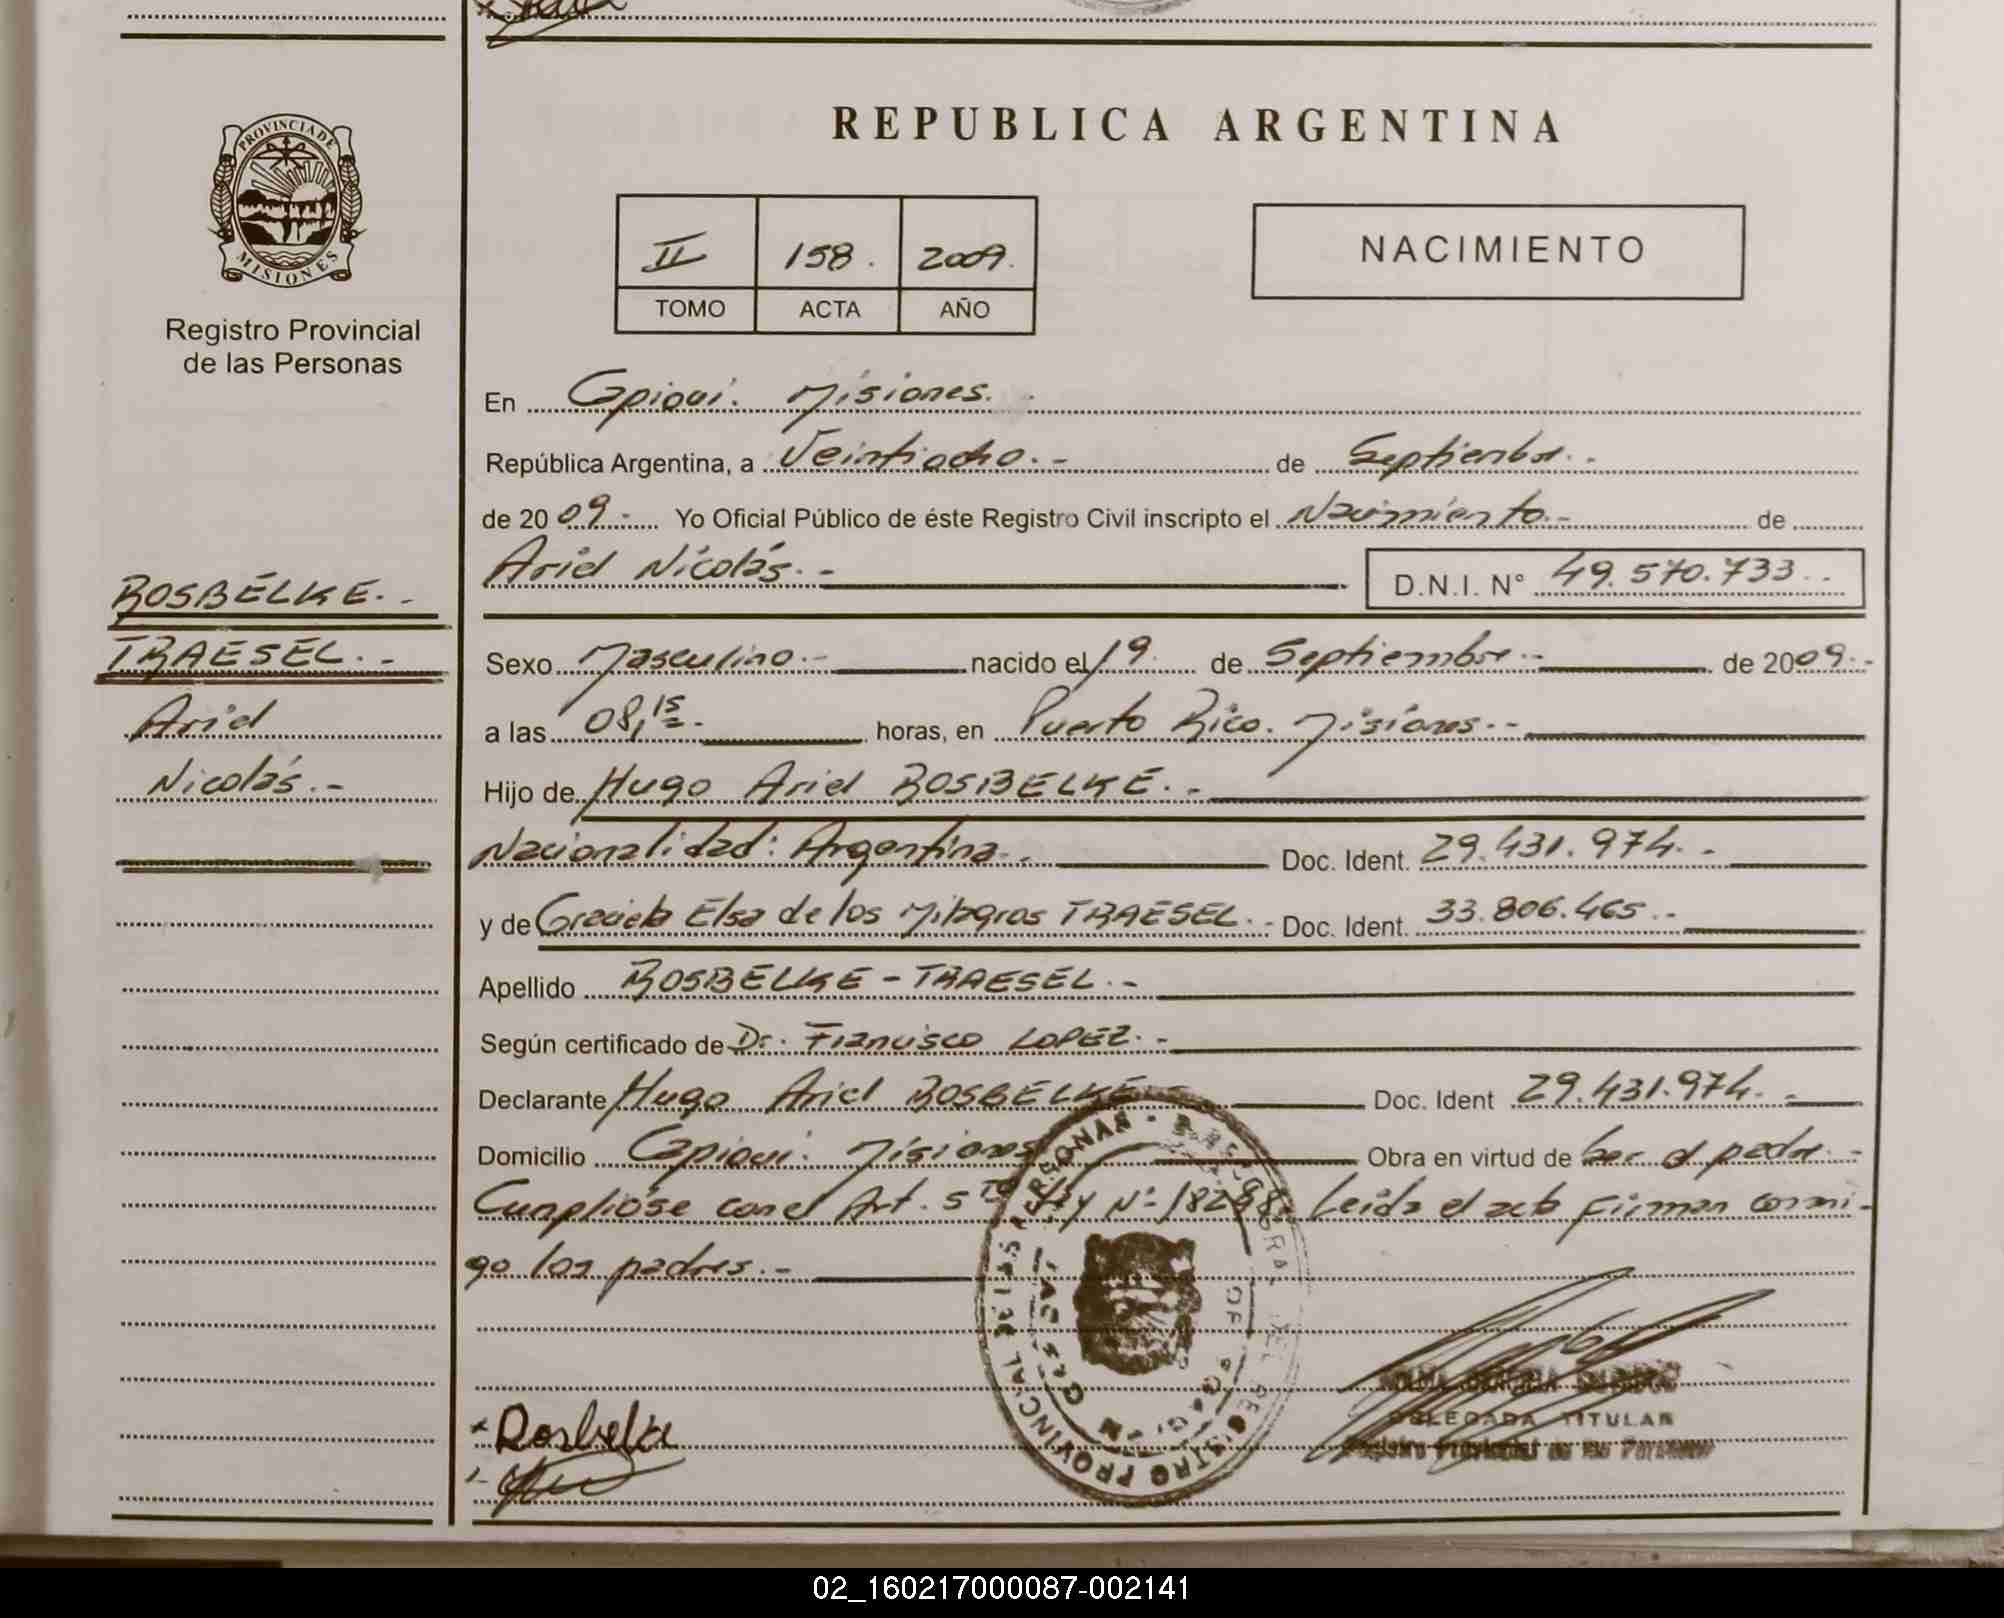 REPUBLICA ARGENTINA
PROVINCIA DE
MISIONES
Registro Provincial
de las Personas
II 158. 2009.
TOMO ACTA AÑO
NACIMIENTO
En Capioví. Misiones.
República Argentina, a Veintiocho.- de Septiembre.-
de 2009.- Yo Oficial Público de éste Registro Civil inscripto el Nacimiento.- de
Ariel Nicolás.- D.N.I. N° 49.570.733.-
ROSBELKE.-
TRAESEL.-
Ariel
Nicolás.-
Sexo Masculino.- nacido el 19 de Septiembre.- de 2009.-
a las 08,15.- horas, en Puerto Rico. Misiones.-
Hijo de Hugo Ariel ROSBELKE.-
Nacionalidad: Argentina.- Doc. Ident. 29.431.974.-
y de Graciela Elsa de los Milagros TRAESEL.- Doc. Ident. 33.806.465.-
Apellido ROSBELKE - TRAESEL.-
Según certificado de Dr. Francisco LOPEZ.-
Declarante Hugo Ariel ROSBELKE Doc. Ident 29.431.974.-
Domicilio Capioví. Misiones Obra en virtud de ser el padre.-
Cumplióse con el Art. 5to Ley N° 18248. Leída el acta firman conmi-
go los padres.-
REGISTRO PROVINCIAL DE LAS PERSONAS
DELEGADA TITULAR
Registro Provincial de las Personas
Rosbelke
02_160217000087-002141